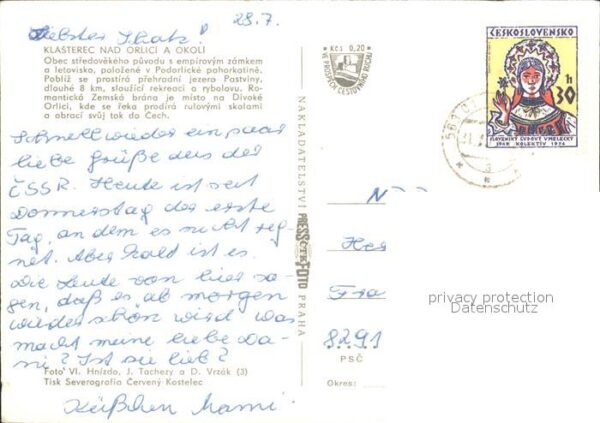 28.7.
Liebster Schatz!
KLÁŠTEREC NAD ORLICÍ A OKOLÍ
Obec středověkého původu s empírovým zámkem
a letovisko, položené v Podorlické pahorkatině.
Poblíž se prostírá přehradní jezero Pastviny,
dlouhé 8 km, sloužící rekreaci a rybolovu. Ro-
mantická Zemská brána je místo na Divoké
Orlici, kde se řeka prodírá rulovými skalami
a obrací svůj tok do Čech.
Schnell wieder ein paar
liebe Grüße aus der
ČSSR. Heute ist seit
Donnerstag der erste
Tag, an dem es nicht reg-
net. Aber kalt ist es.
Die Leute von hier sa-
gen, daß es ab morgen
wieder schön wird. Was
macht meine liebe Da-
ni? Ist sie lieb?
Foto Vl. Hnízdo, J. Tachezy a D. Vrzák (3)
Tisk Severografia Červený Kostelec
Küßchen Mami
NAKLADATELSTVÍ PRESSFOTO PRAHA
Kčs 0,20
VE PROSPĚCH CESTOVNÍHO RUCHU
ČESKOSLOVENSKO
30 h
SLOVENSKÝ ĽUDOVÝ UMELECKÝ
KOLEKTÍV 1974
N
Her
Fra
8291
PSČ
Okres:
privacy protection
Datenschutz